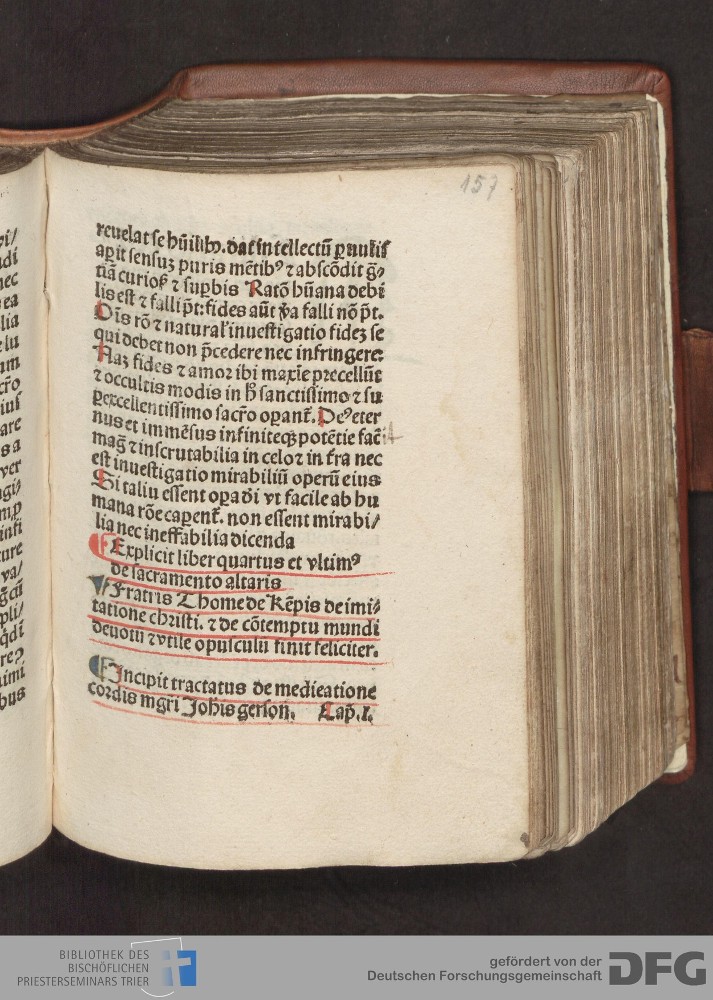 157
reuelat se hūilibꝫ. dat intellectū ꝑuulis
aꝑit sensuꝫ puris mētibꝰ ⁊ abscōdit g̃⸗
tiā curiosꝭ ⁊ suꝑbis Ratō hūana debi
lis est ⁊ falli pt̄: fides aūt ṽa falli nō pt̄.
Ois rō ⁊ natural' inuestigatio fideꝫ se
qui debet non p̄cedere nec infringere:
Naꝫ fides ⁊ amor ibi maxīe precellūt
⁊ occultis modis in h̄ sanctissimo ⁊ su
ꝑexcellentissimo sacr̄o oꝑant̄. Deꝰ eter
nus et immēsus infiniteqꝫ potētie facit
mag̃ ⁊ inscrutabilia in celoꝛ in t̄ra nec
est inuestigatio mirabiliū operū eius
Si taliu essent oꝑa di vt facile ab hu
mana rōe caperent̄. non essent mirabi/
lia nec ineffabilia dicenda
Explicit liber quartus et vltimꝰ
de sacramento altaris
Fratris Thome de Kēpis de imi/
tatione christi. ⁊ de cōtemptu mundi
deuotū ⁊ vtile opusculū finit feliciter.
Incipit tractatus de medieatione
cordis mgr̄i Joh̄is gerson. Cap. I.
BIBLIOTHEK DES
BISCHÖFLICHEN
PRIESTERSEMINARS TRIER
gefördert von der
Deutschen Forschungsgemeinschaft
DFG